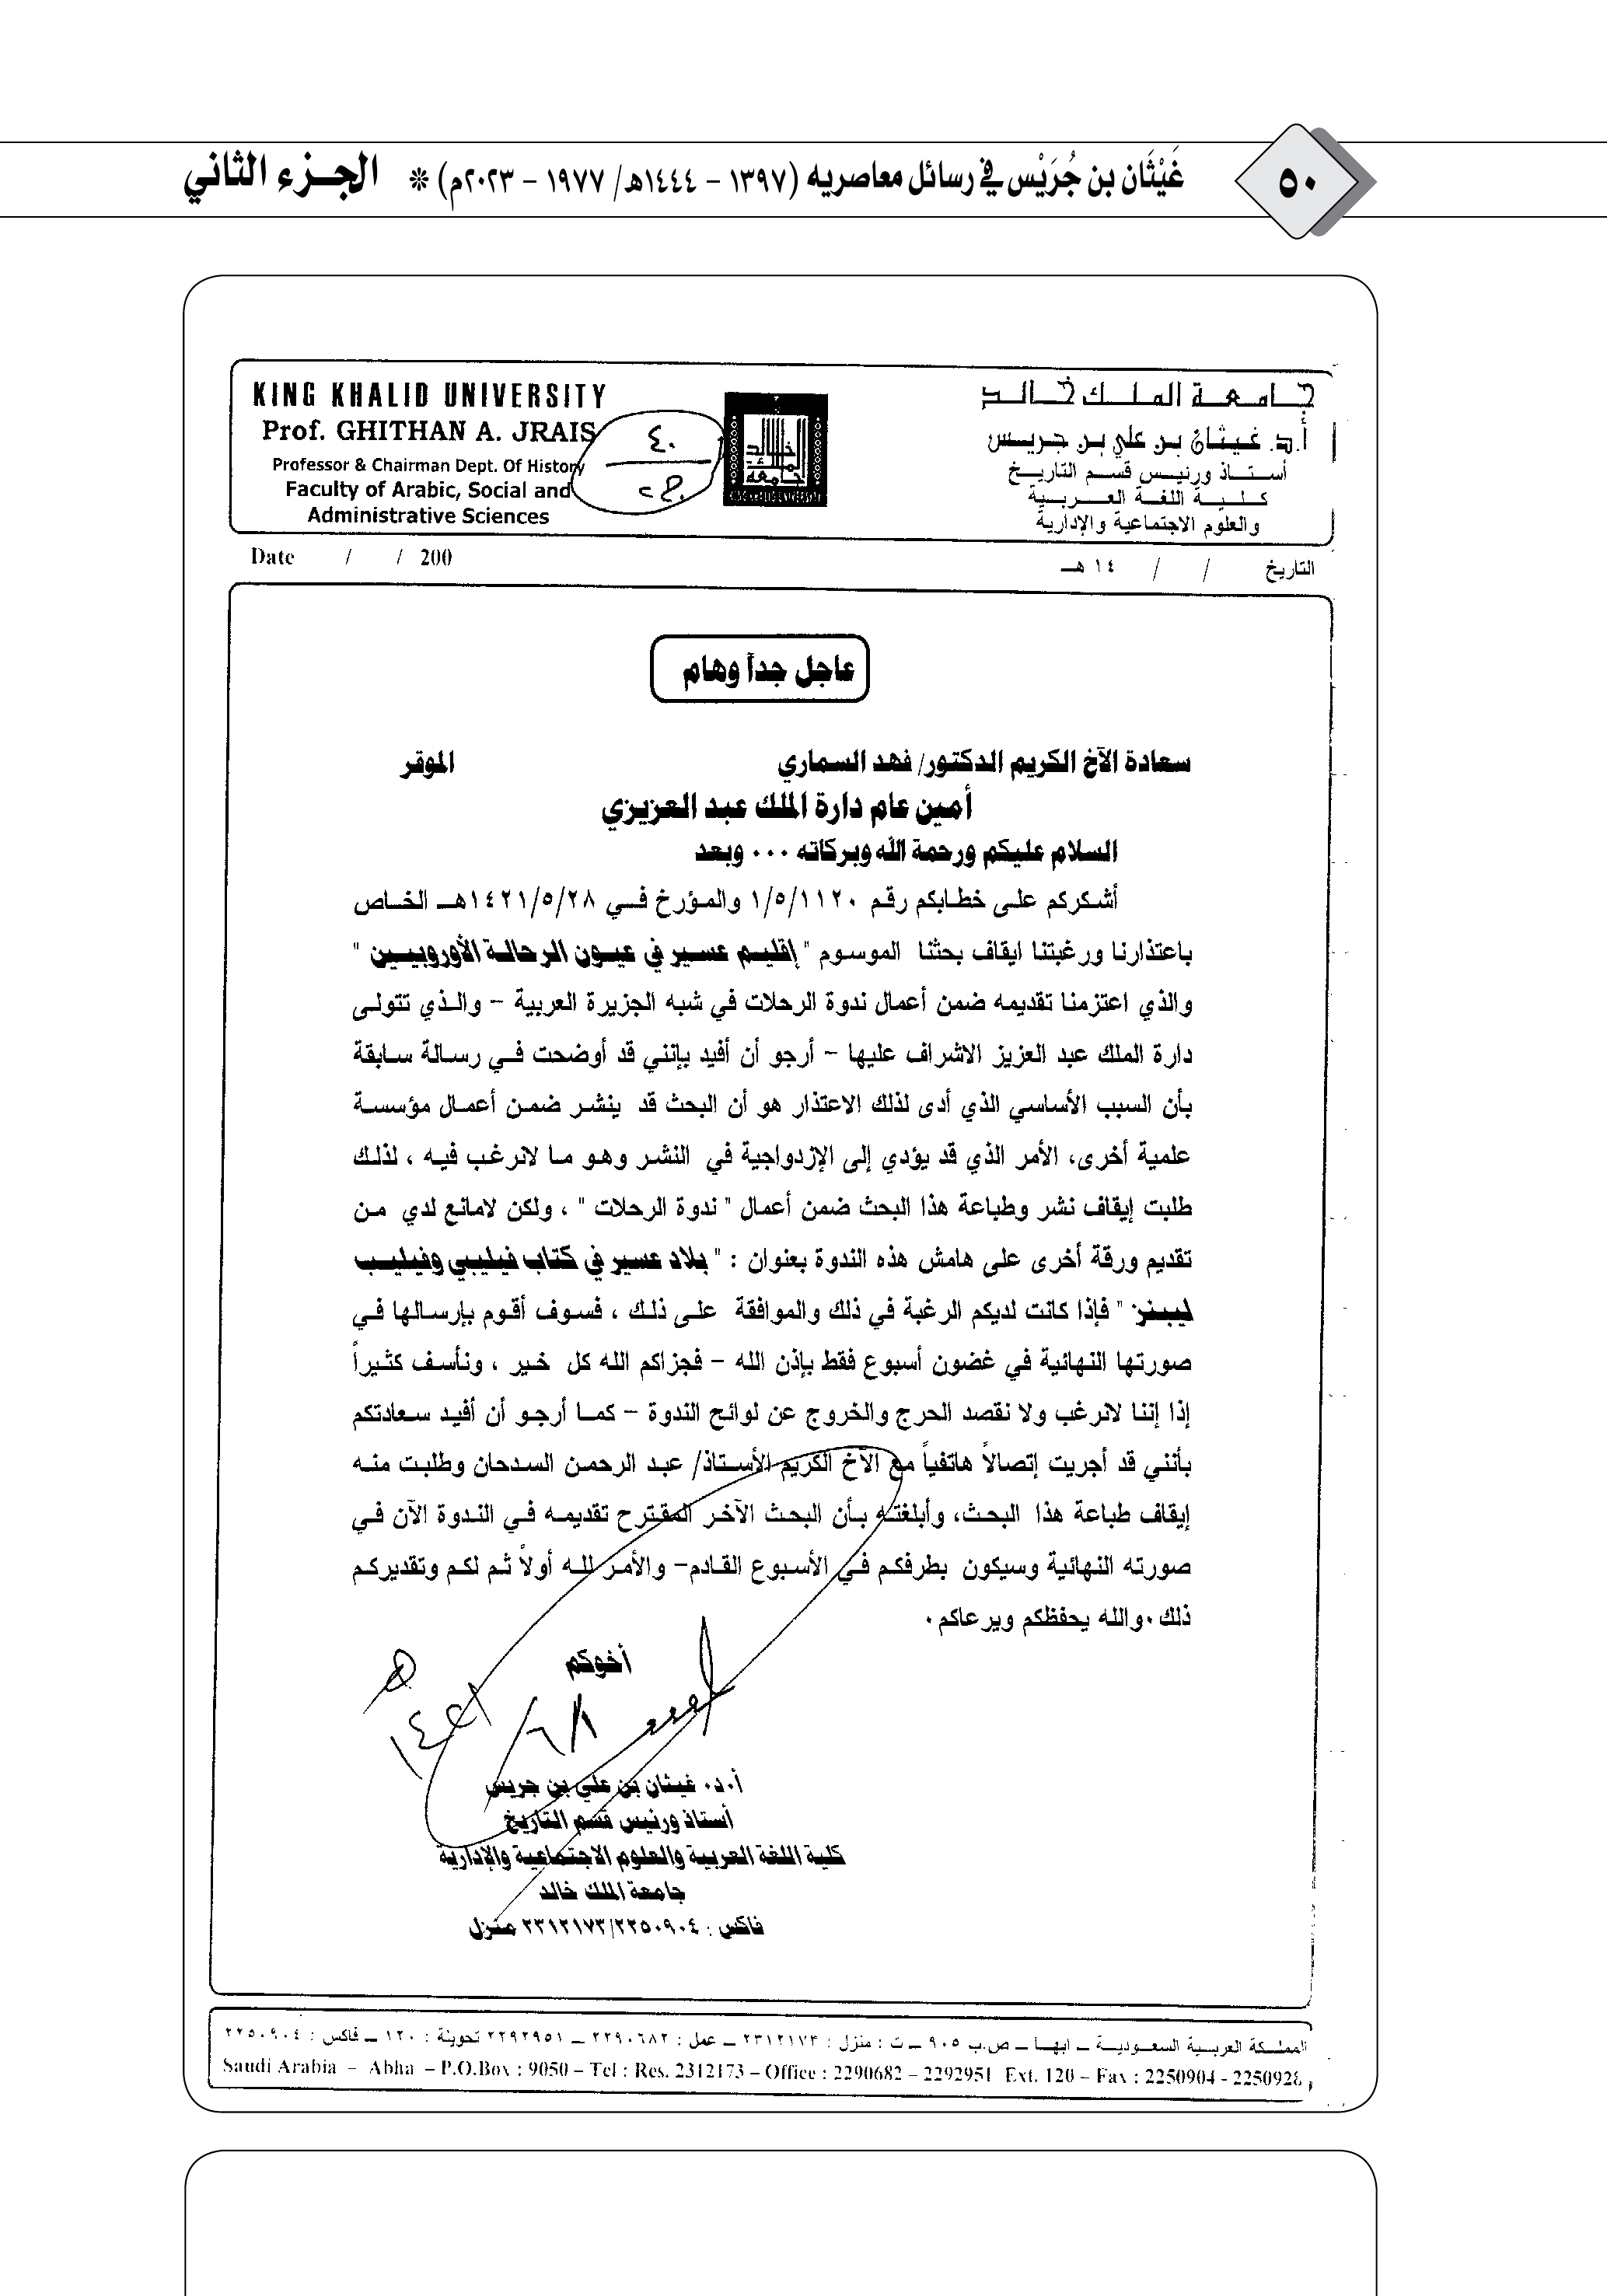 ٥٠
غَيْثَان بن جُرَيْس في رسائل معاصريه (١٣٩٧ - ١٤٤٤هـ/ ١٩٧٧ - ٢٠٢٣م) * الجزء الثاني
KING KHALID UNIVERSITY
Prof. GHITHAN A. JRAIS
Professor & Chairman Dept. Of History
Faculty of Arabic, Social and
Administrative Sciences
٤٠
جامعة الملك خالد
KING KHALID UNIVERSITY
جامعة الملك خالد
أ.د. غيثان بن علي بن جريس
أستاذ ورئيس قسم التاريخ
كلية اللغة العربية
والعلوم الاجتماعية والإدارية
Date / / 200
التاريخ / / ١٤ هـ
عاجل جداً وهام
سعادة الآخ الكريم الدكتور/ فهد السماري الموقر
أمين عام دارة الملك عبد العزيزي
السلام عليكم ورحمة الله وبركاته ... وبعد
أشكركم على خطابكم رقم ١/٥/١١٢٠ والمؤرخ في ١٤٢١/٥/٢٨هـ الخاص
باعتذارنا ورغبتنا ايقاف بحثنا الموسوم " إقليم عسير في عيون الرحالة الأوروبيين "
والذي اعتزمنا تقديمه ضمن أعمال ندوة الرحلات في شبه الجزيرة العربية - والذي تتولى
دارة الملك عبد العزيز الاشراف عليها - أرجو أن أفيد بإنني قد أوضحت في رسالة سابقة
بأن السبب الأساسي الذي أدى لذلك الاعتذار هو أن البحث قد ينشر ضمن أعمال مؤسسة
علمية أخرى، الأمر الذي قد يؤدي إلى الإزدواجية في النشر وهو ما لانرغب فيه ، لذلك
طلبت إيقاف نشر وطباعة هذا البحث ضمن أعمال " ندوة الرحلات " ، ولكن لامانع لدي من
تقديم ورقة أخرى على هامش هذه الندوة بعنوان : " بلاد عسير في كتاب فيليبي وفيليب
ليبنز " فإذا كانت لديكم الرغبة في ذلك والموافقة على ذلك ، فسوف أقوم بإرسالها في
صورتها النهائية في غضون أسبوع فقط بإذن الله - فجزاكم الله كل خير ، ونأسف كثيراً
إذا إننا لانرغب ولا نقصد الحرج والخروج عن لوائح الندوة - كما أرجو أن أفيد سعادتكم
بأنني قد أجريت إتصالاً هاتفياً مع الآخ الكريم الأستاذ/ عبد الرحمن السدحان وطلبت منه
إيقاف طباعة هذا البحث، وأبلغته بأن البحث الآخر المقترح تقديمه في الندوة الآن في
صورته النهائية وسيكون بطرفكم في الأسبوع القادم- والأمر لله أولاً ثم لكم وتقديركم
ذلك.والله يحفظكم ويرعاكم.
أخوكم
أ.د. غيثان بن علي بن جريس
أستاذ ورئيس قسم التاريخ
كلية اللغة العربية والعلوم الاجتماعية والإدارية
جامعة الملك خالد
فاكس : ٢٢٥٠٩٠٤/٢٣١٢١٧٣ منزل
المملكة العربية السعودية ــ ابها ــ ص.ب ٩٠٥ ــ ت : منزل : ٢٣١٢١٧٣ ــ عمل : ٢٢٩٠٦٨٢ ــ ٢٢٩٢٩٥١ تحويلة : ١٢٠ ــ فاكس : ٢٢٥٠٩٠٤
Saudi Arabia – Abha – P.O.Box : 9050 – Tel : Res. 2312173 – Office : 2290682 – 2292951 Ext. 120 – Fax : 2250904 - 2250928